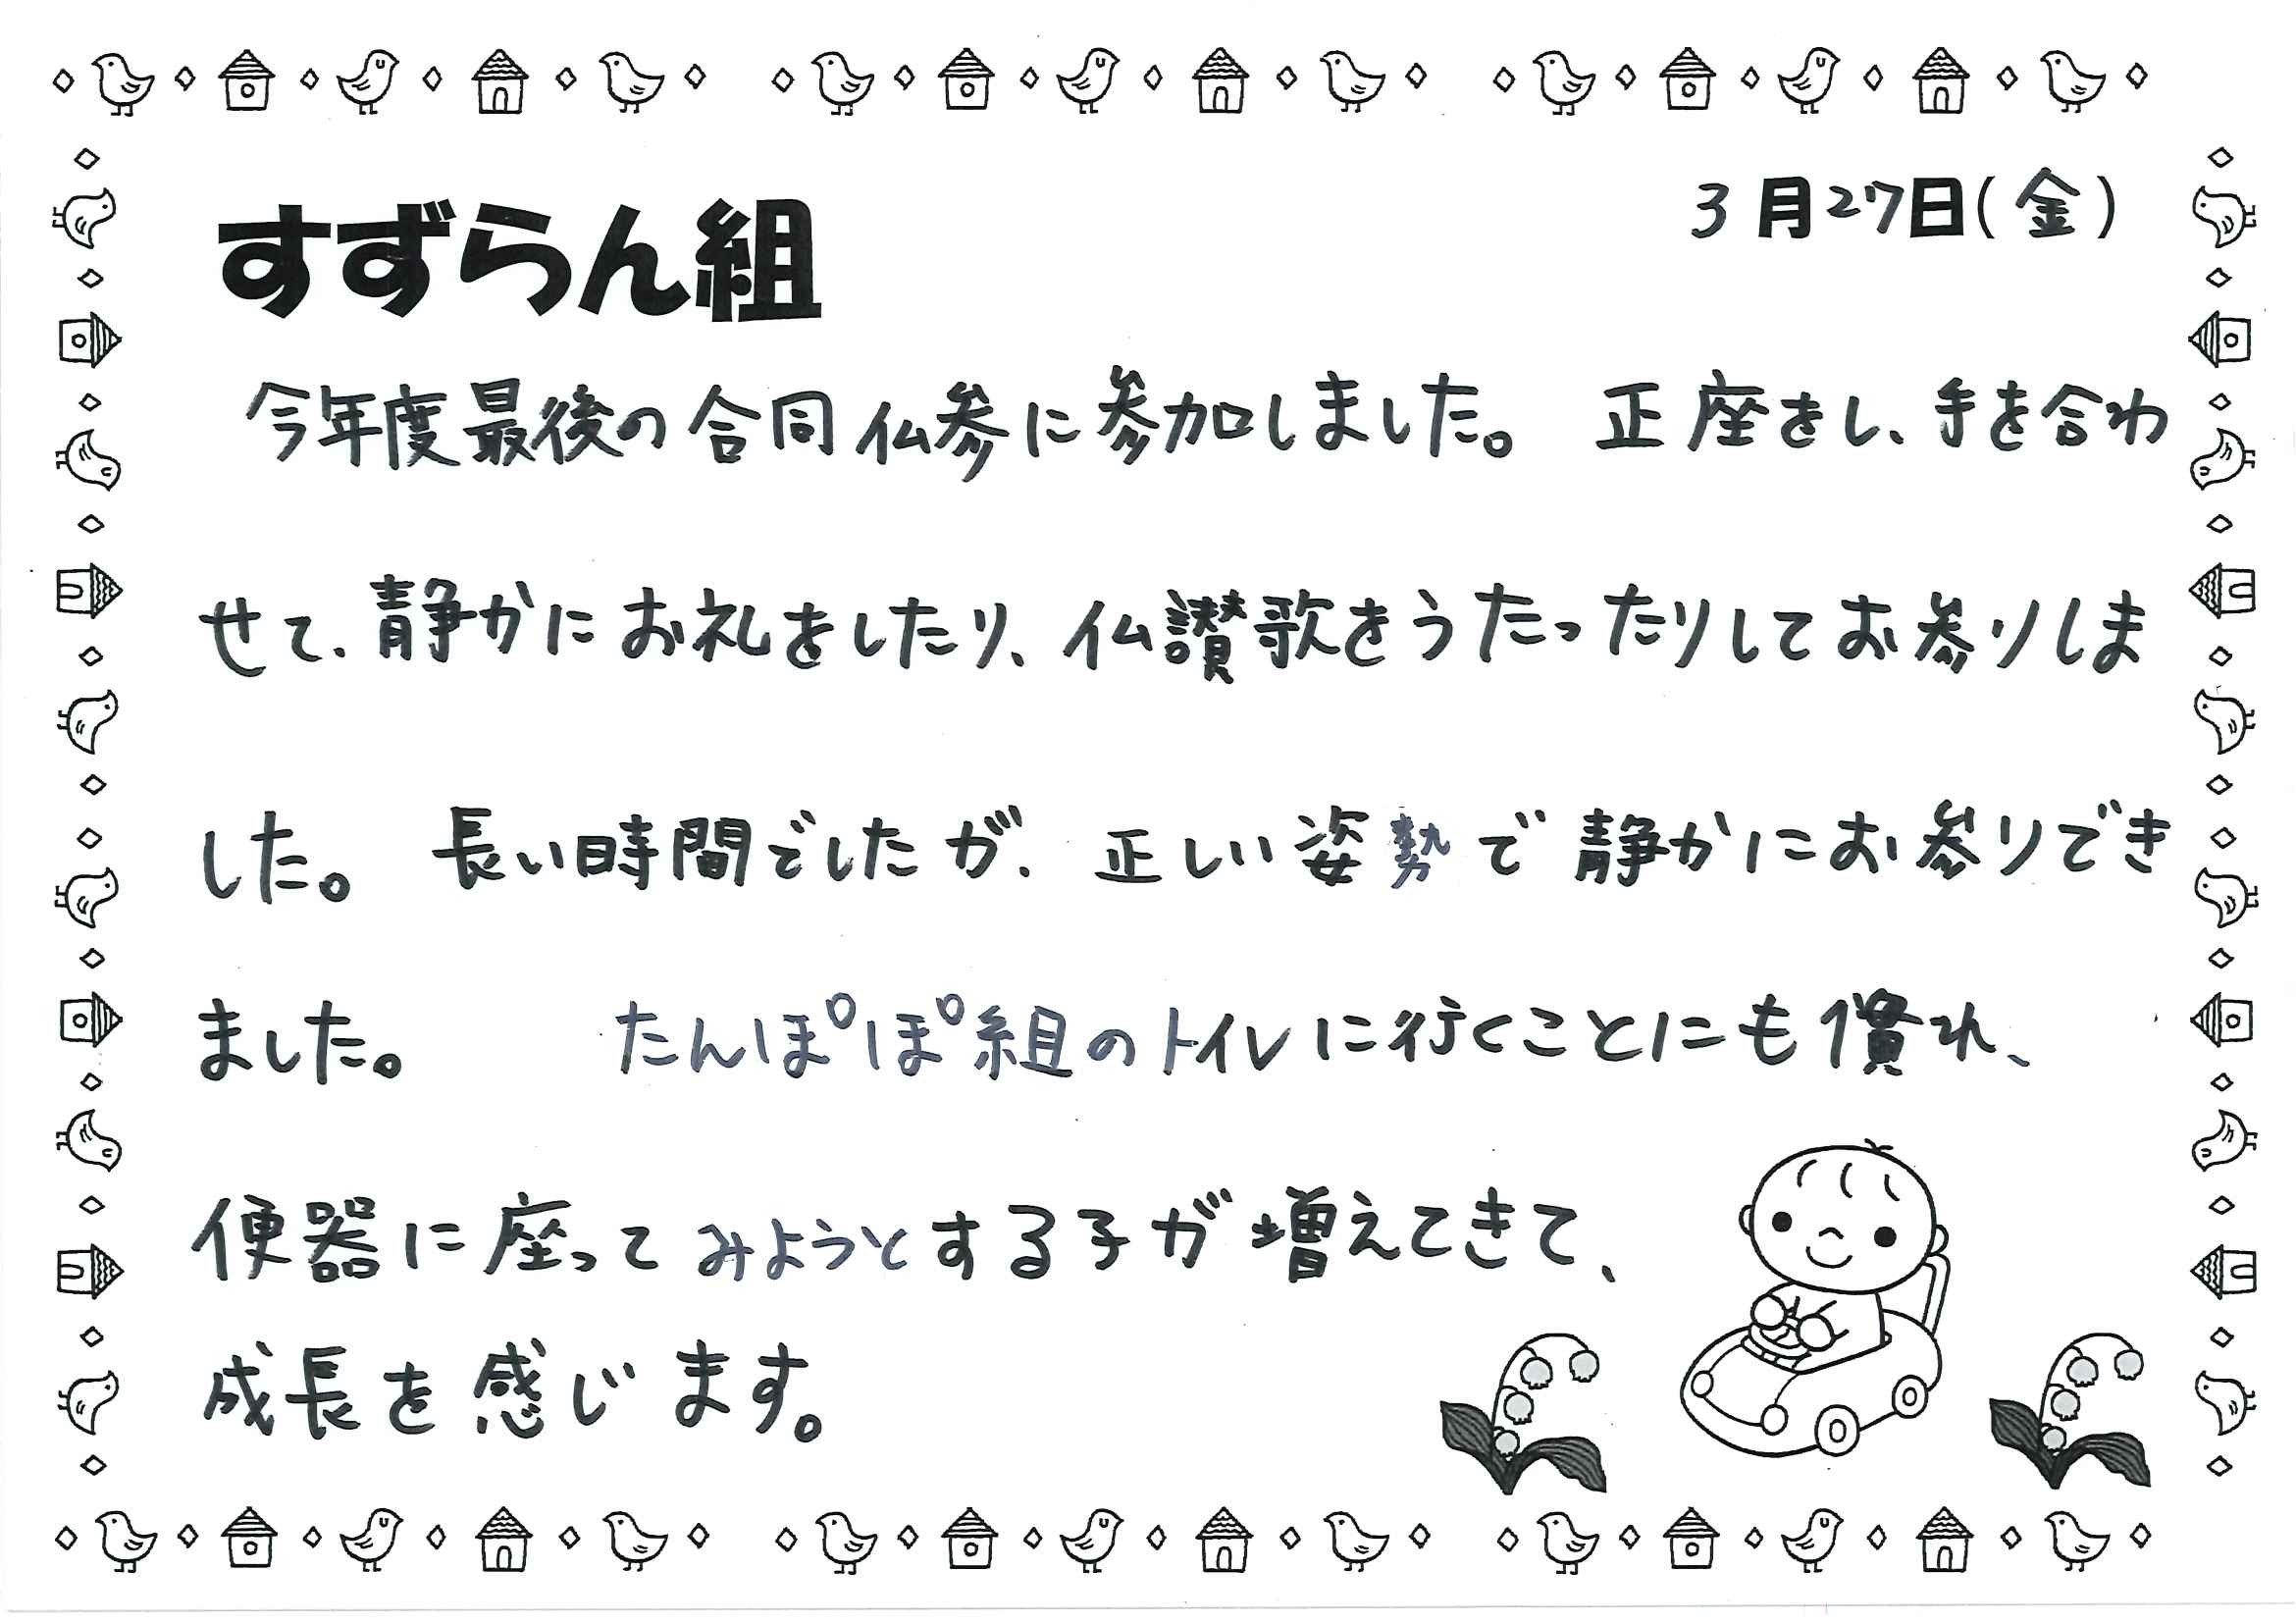 3月27日(金)
すずらん組
今年度最後の合同仏参に参加しました。 正座をし、手を合わ
せて、静かにお礼をしたり、仏讃歌をうたったりしてお参りしま
した。 長い時間でしたが、正しい姿勢で静かにお参りでき
ました。 たんぽぽ組のトイレに行くことにも慣れ、
便器に座ってみようとする子が増えてきて、
成長を感じます。